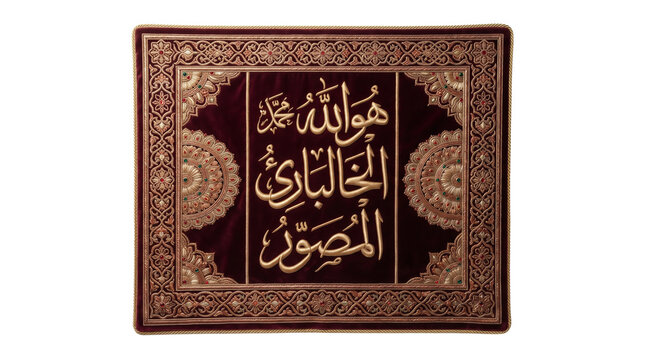 هُوَاللَّهُ محمد
الخَالبَارِئُ
المُصَوِّرُ